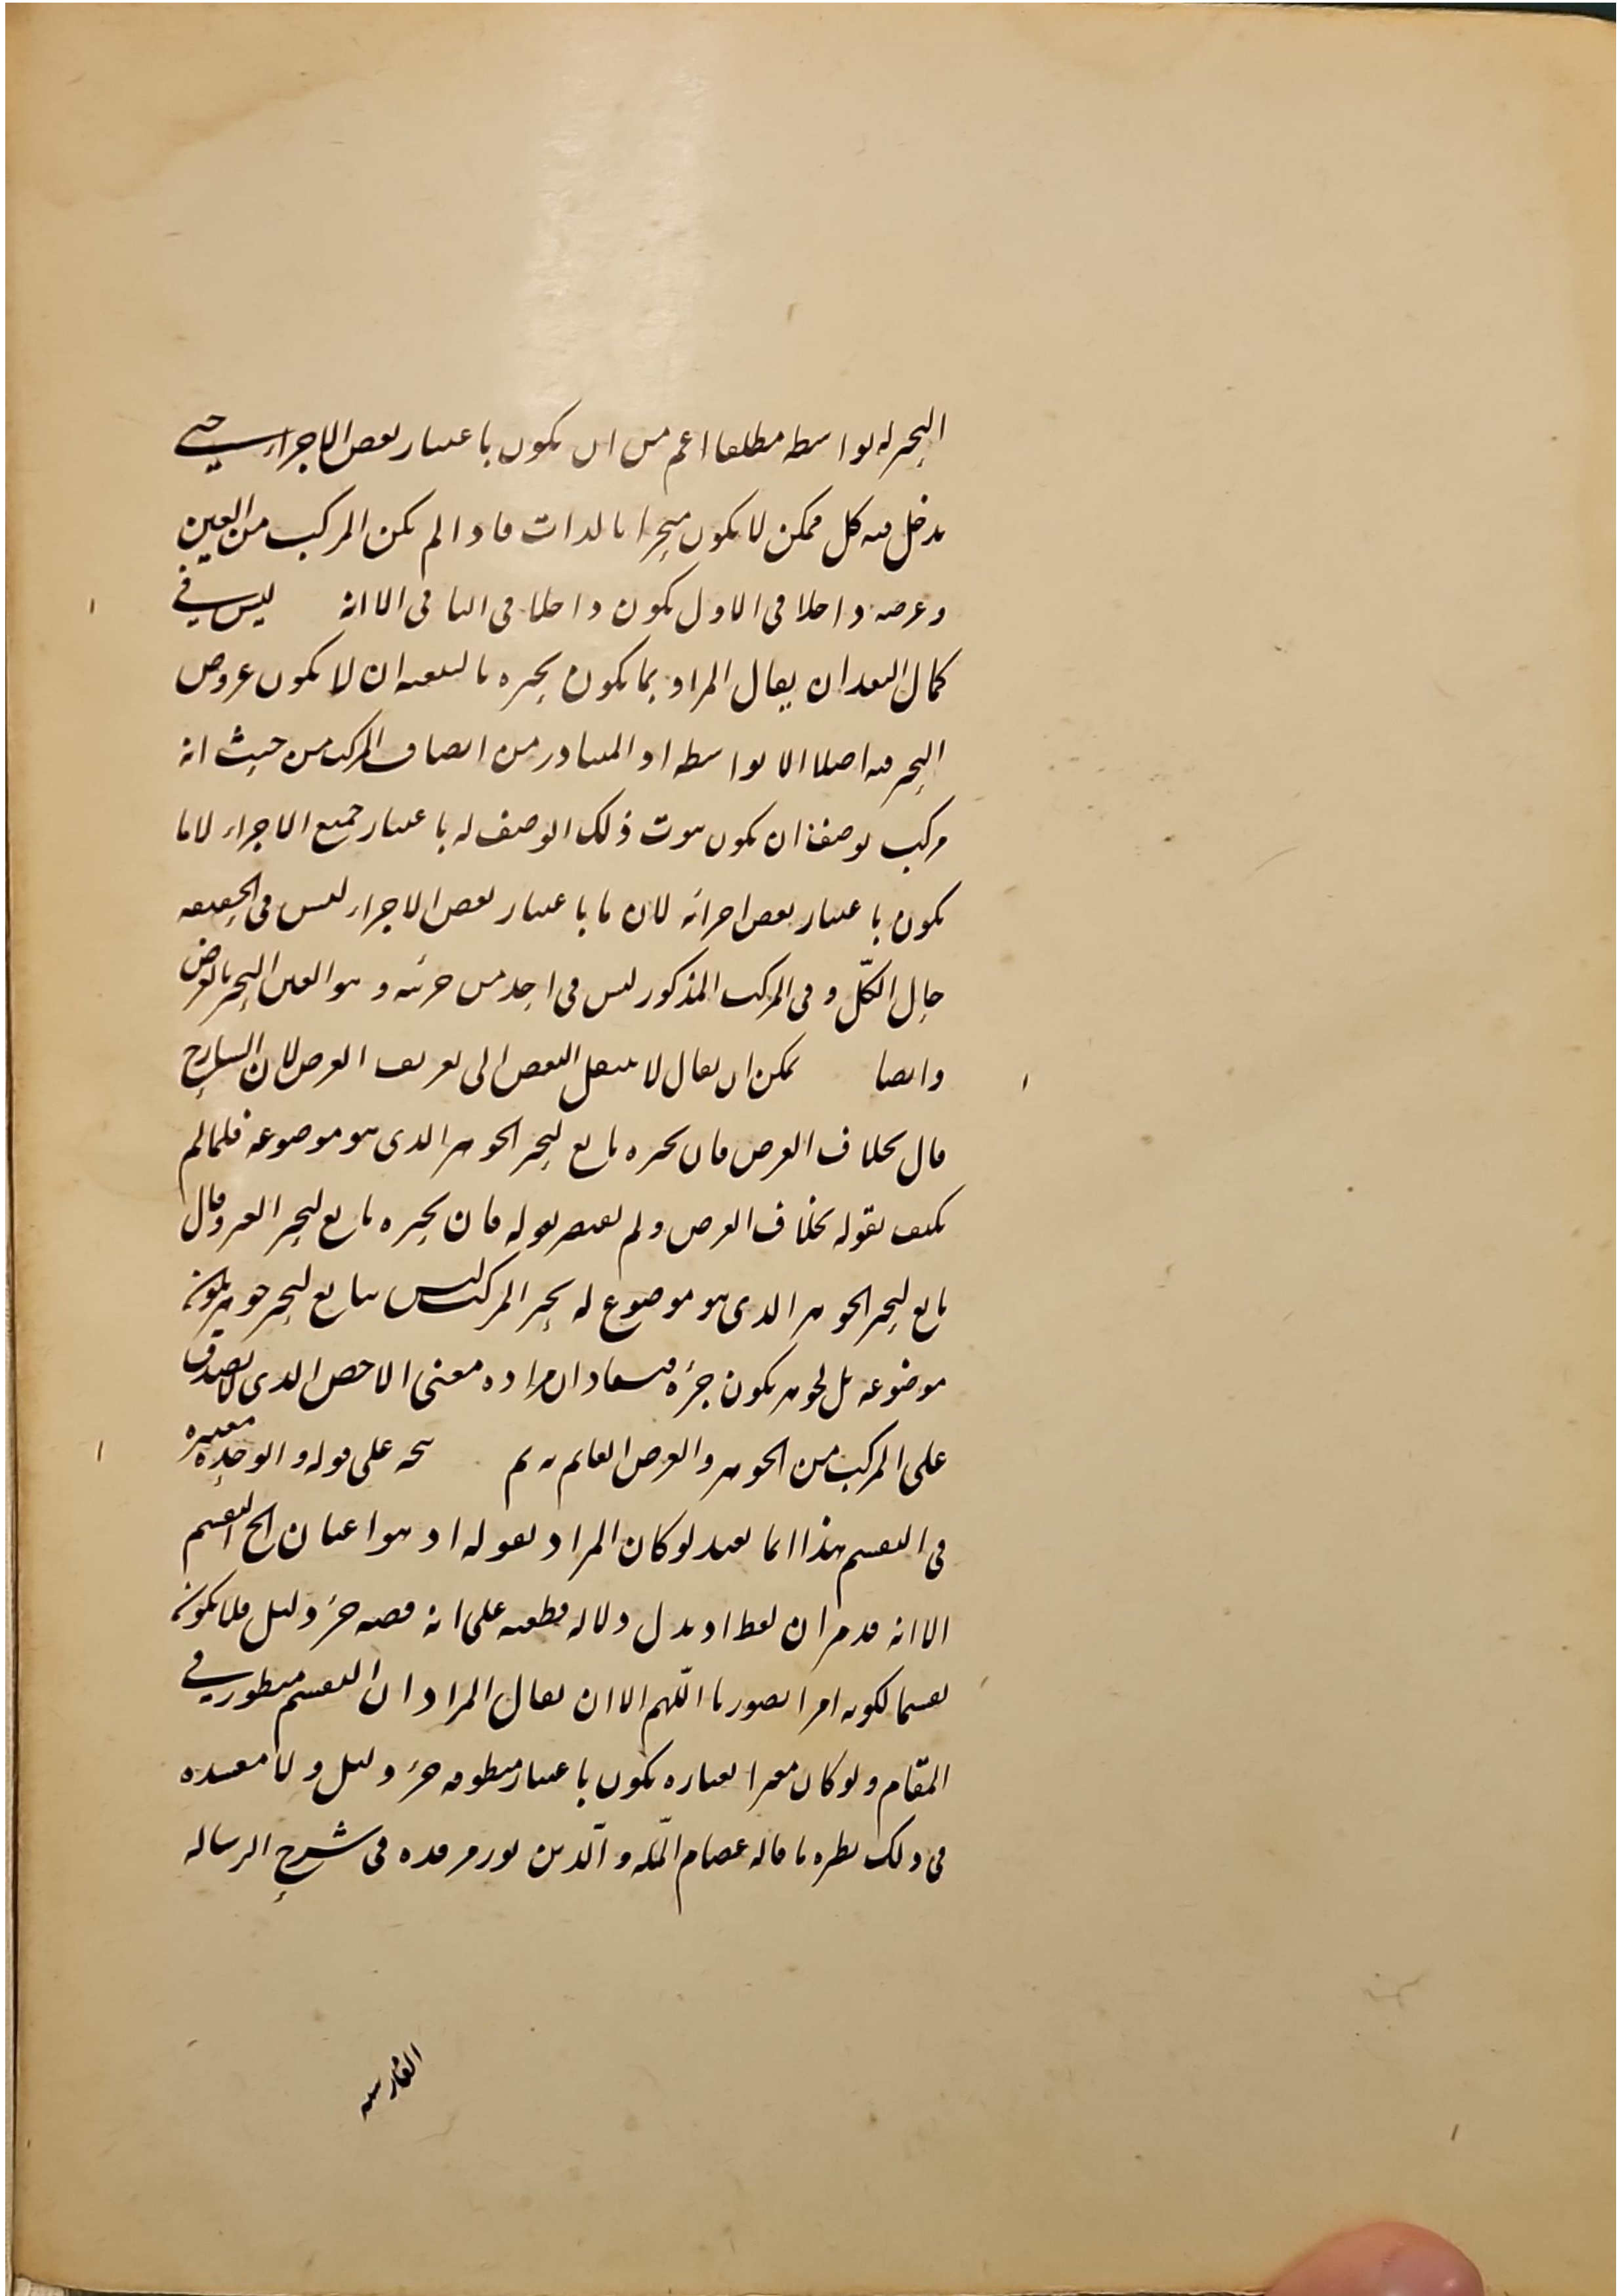 التحيز له بواسطة مطلقا اعم من ان يكون باعتبار بعض الاجزاء حتى
يدخل فيه كل ممكن لا يكون متحيزا بالذات فاذا لم يكن المركب من العين
وعرضه داخلا في الاول يكون داخلا في الثاني الا انه ليس في
كمال البعد ان يقال المراد بما يكون تحيزه بالتبعية ان لا يكون عروض
التحيز فيه اصلا الا بواسطة اذ المتبادر من اتصاف المركب من حيث انه
مركب بوصف ان يكون ثبوت ذلك الوصف له باعتبار جميع الاجزاء لا ما
يكون باعتبار بعض اجزائه لان ما باعتبار بعض الاجزاء ليس في الحقيقة
حال الكلّ وفي المركب المذكور ليس في احد من جزئيه وهو العين التحيز بالعرض
وايضا يمكن ان يقال لا ينتقل النقض الى تعريف العرض لان الشارح
قال بخلاف العرض فان تحيزه تابع لتحيز الجوهر الذي هو موضوعه فلما لم
يكتف بقوله بخلاف العرض ولم يقتصر بقوله فان تحيزه تابع لتحيز الغير وقال
تابع لتحيز الجوهر الذي هو موضوع له تحيز المركب ليس بتابع لتحيز جوهر يكون
موضوعه بل لجوهر يكون جزءه فيستفاد ان مراده معنى الاخص الذي لا يصدق
على المركب من الجوهر والعرض القائم به تم يتجه على قوله والوحدة معتبرة
في التقسيم هذا انما يفيد لو كان المراد بقوله اذ هو اعيان الخ التقسيم
الا انه قد مر ان لفظ اذ يدل دلالة قطعية على انه قضية جزء دليل فلا يكون
تقسيما لكونه امرا تصوريا اللّهم الا ان يقال المراد ان التقسيم منظور في
المقام ولو كان معبرا بعبارة يكون باعتبار منطوقه جزء دليل ولا مفسدة
في ذلك نظيره ما قاله عصام الملّة والدّين نور مرقده في شرح الرسالة
الفارسية